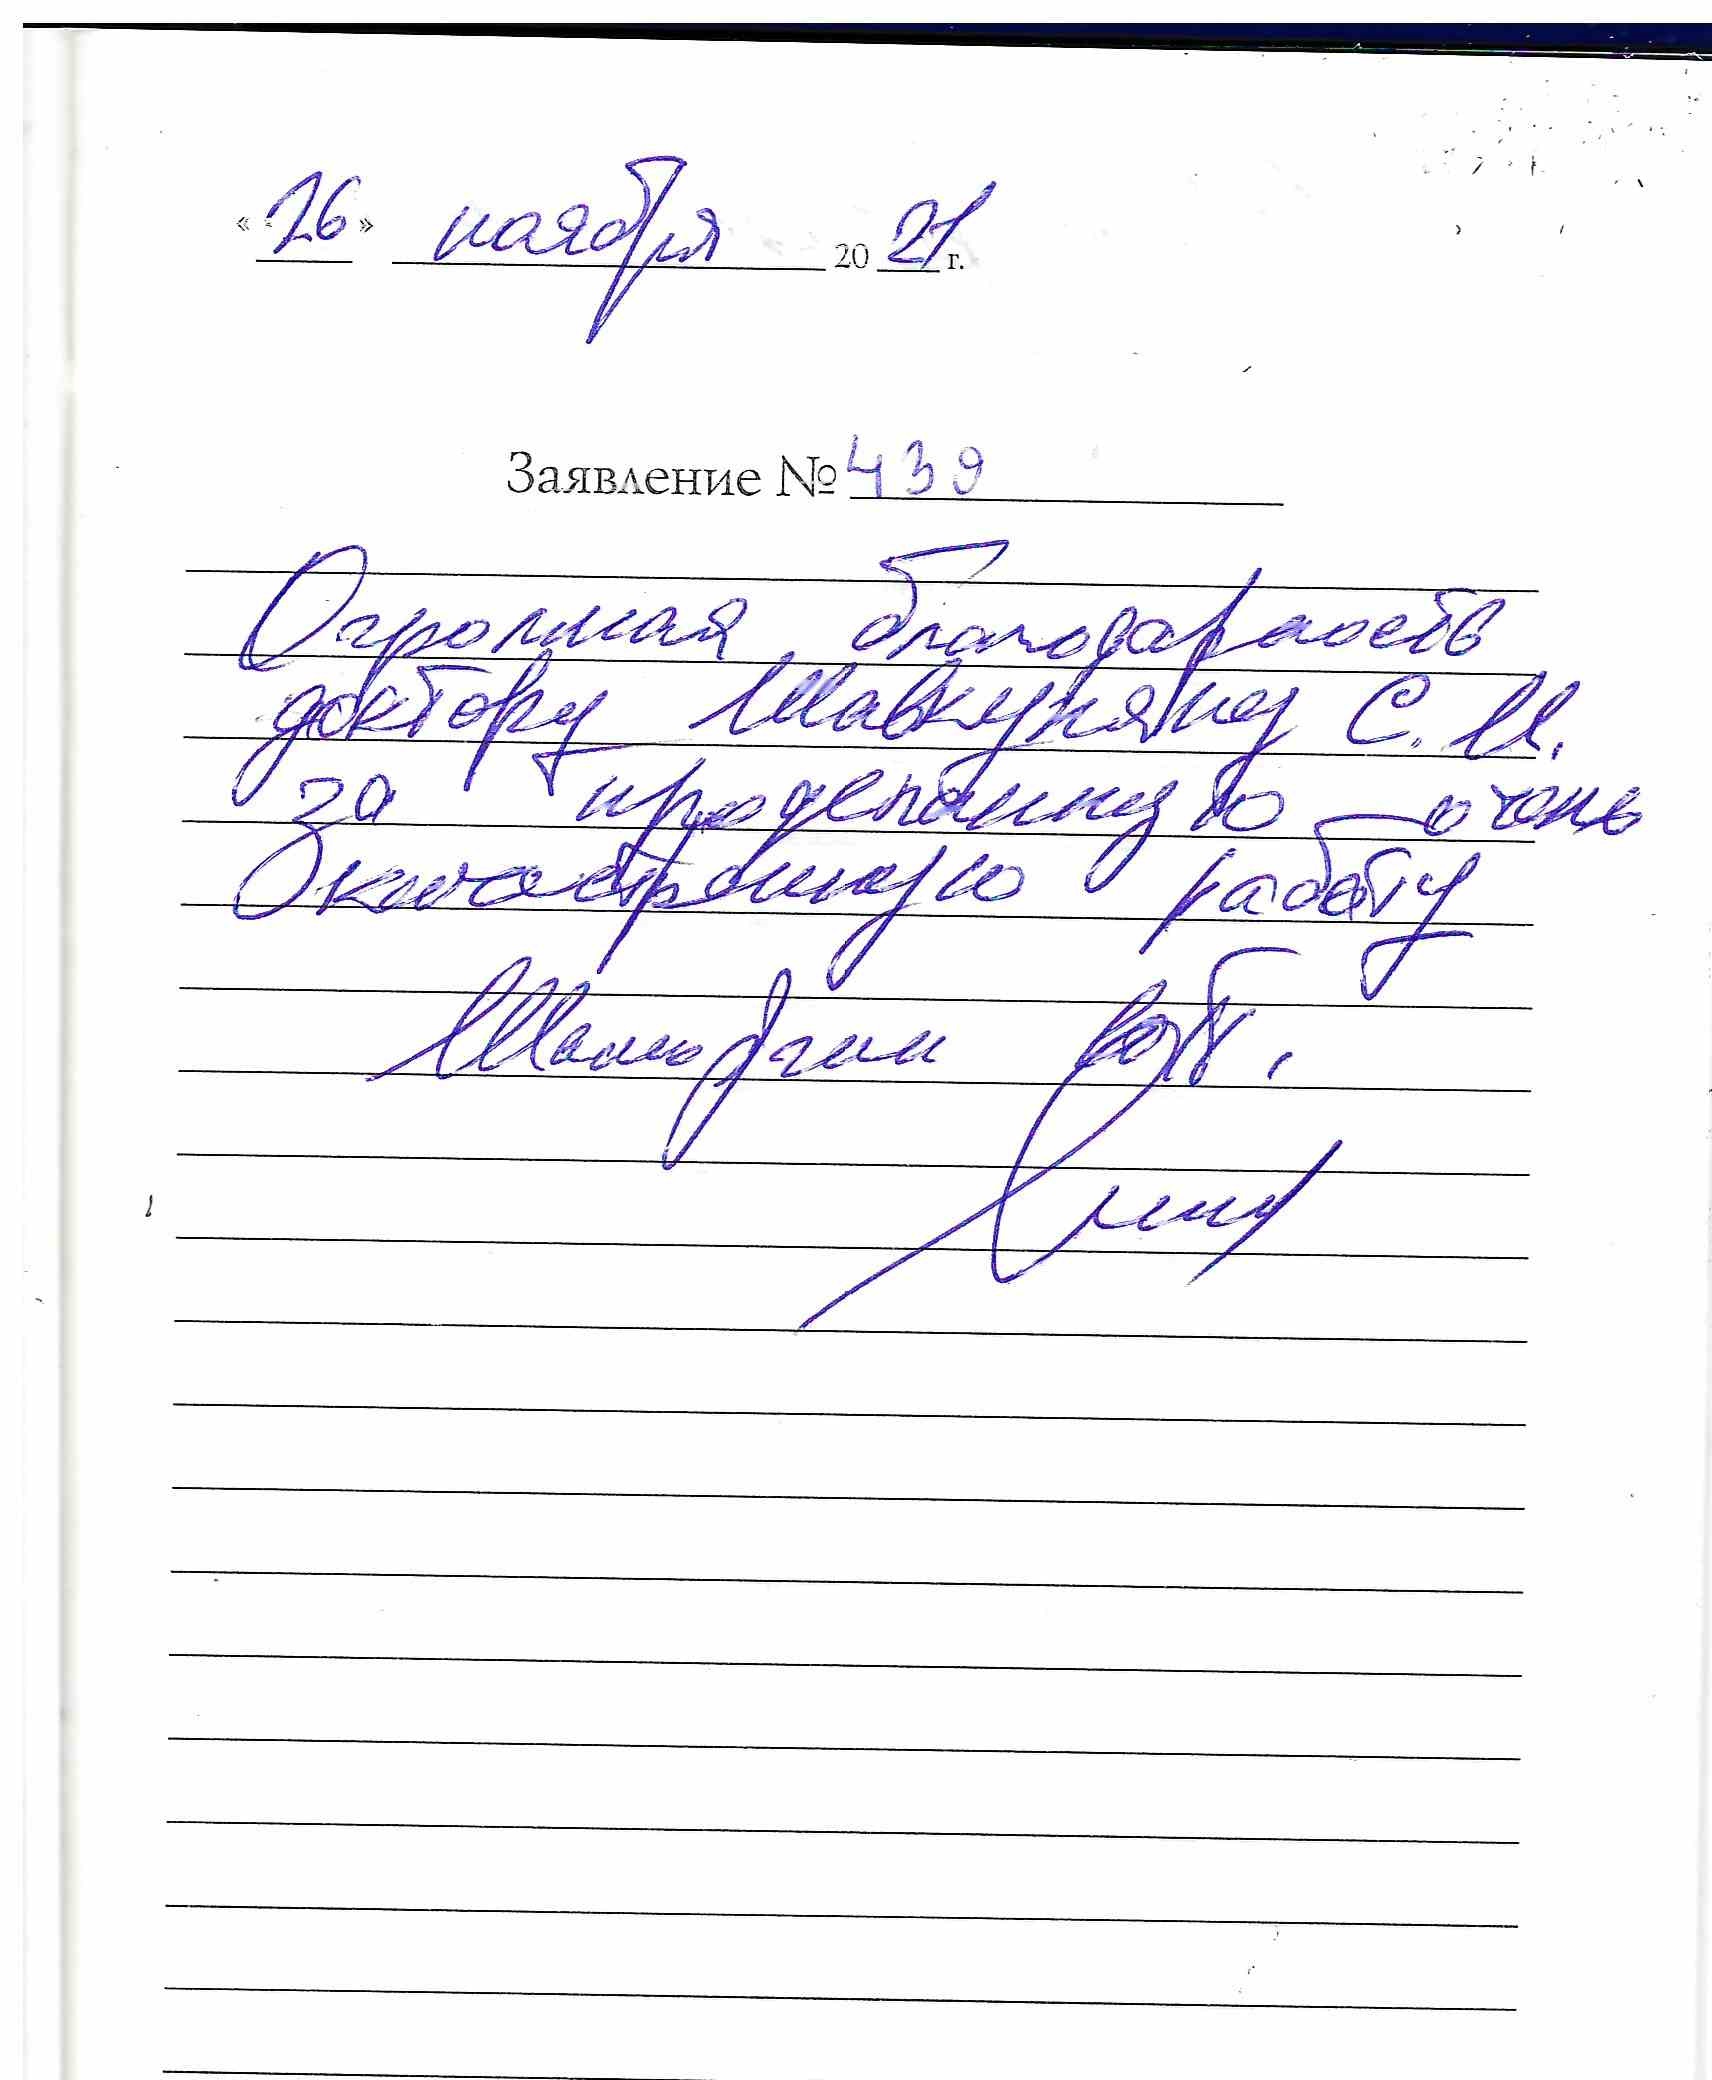 «26» ноября 2021 г.
Заявление № 439
Огромная благодарность
доктору Шавкуняну С. М.
за проделанную очень
качественную работу